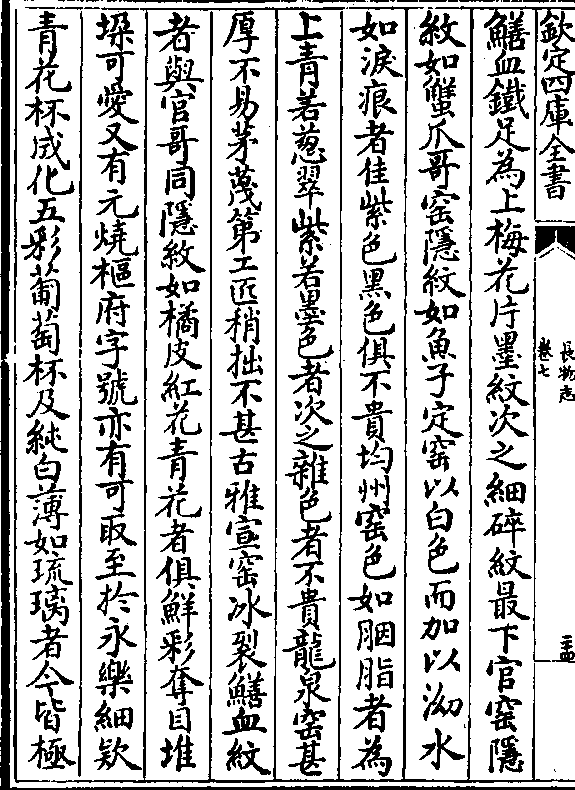 欽定四庫全書
長物志
卷七
鱔血鐵足為上梅花片墨紋次之細碎紋最下官窑隱
紋如蟹爪哥窑隱紋如魚子定窑以白色而加以泑水
如淚痕者佳紫色黑色俱不貴均州窑色如胭脂者為
上青若葱翠紫若墨色者次之雜色者不貴龍泉窑甚
厚不易茅蔑第工匠稍拙不甚古雅宣窑冰裂鱔血紋
者與官哥同隱紋如橘皮紅花青花者俱鮮彩奪目堆
垜可愛又有元燒樞府字號亦有可取至於永樂細欵
青花杯成化五彩葡萄杯及純白薄如琉璃者今皆極